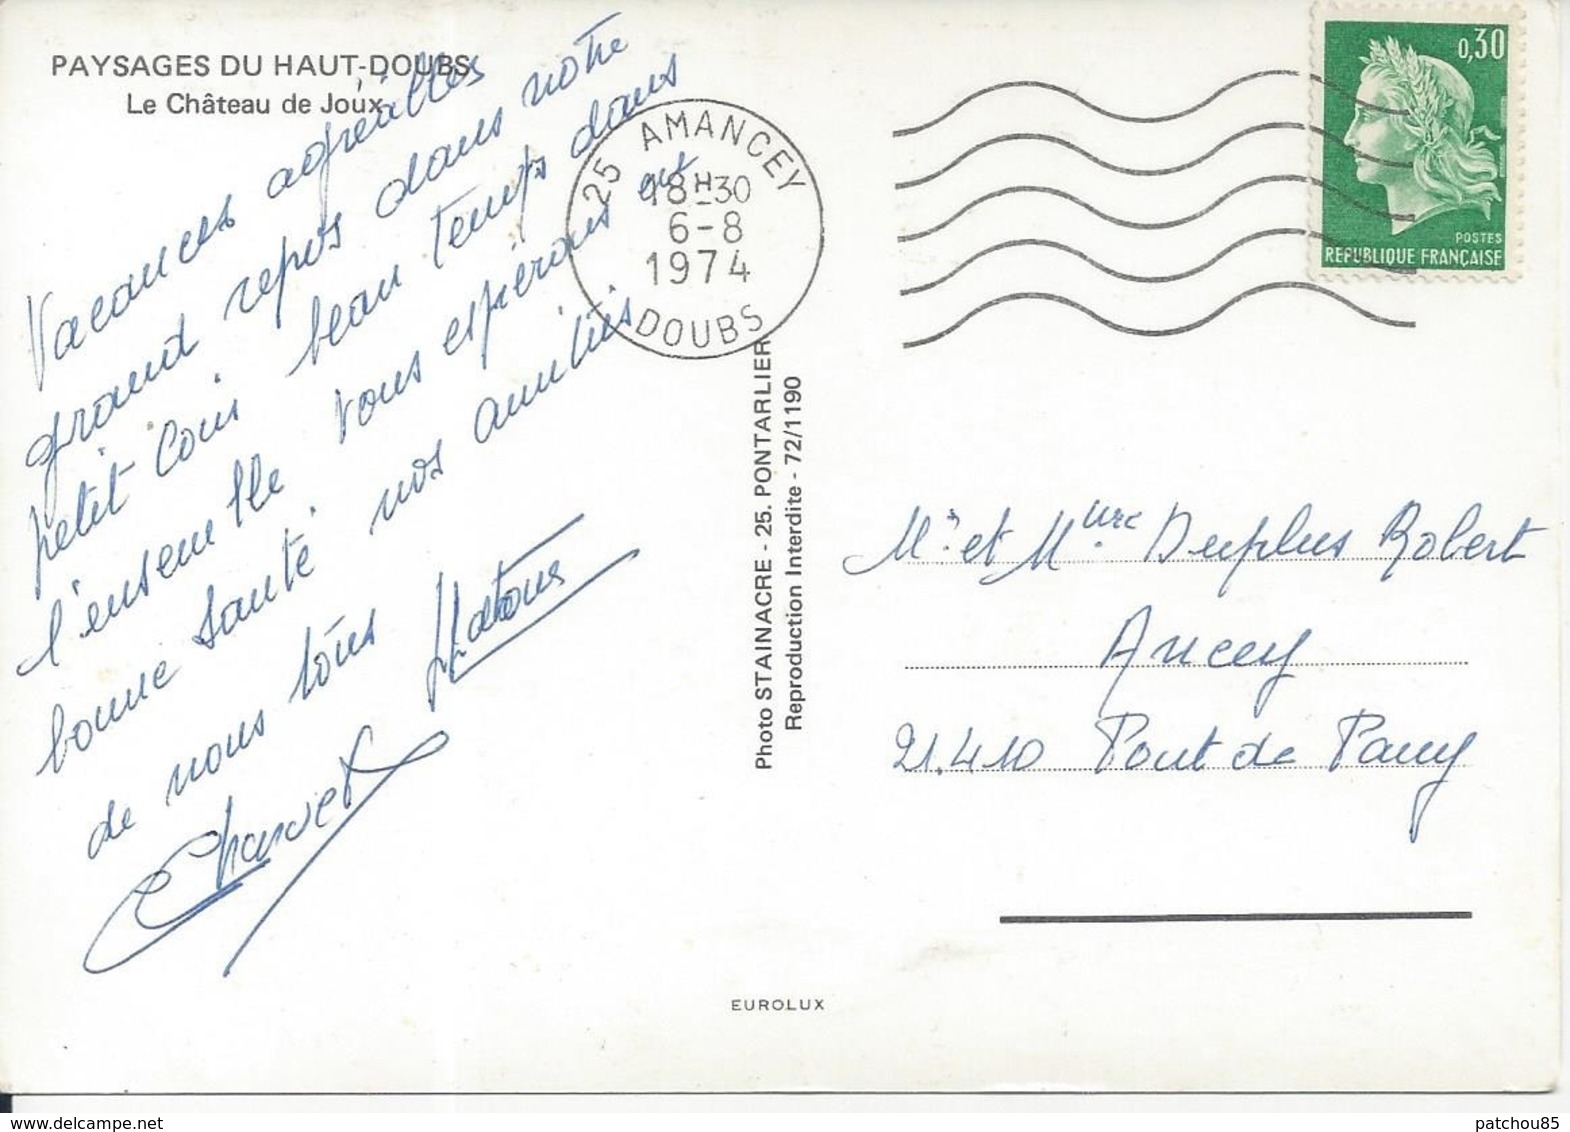 PAYSAGES DU HAUT-DOUBS
Le Château de Joux
Vacances agréables
grand repos dans notre
petit coin beau temps dans
l'ensemble vous espérons en
bonne santé nos amitiés
de nous tous
Charvet
25 AMANCEY
18H30
6-8
1974
DOUBS
0,30
POSTES
REPUBLIQUE FRANÇAISE
Photo STAINACRE - 25. PONTARLIER
Reproduction Interdite - 72/1190
Mr et Mme Duplus Robert
Ancey
21.410 Pont de Pany
EUROLUX
patchou85